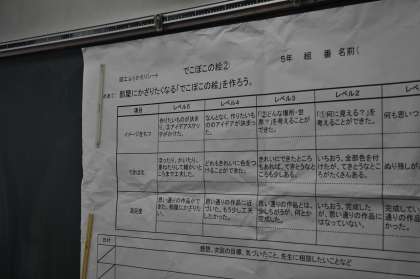 図工ふりかえりシート でこぼこの絵② 5年 組 番 名前(
めあて 部屋にかざりたくなる「でこぼこの絵」を作ろう。
項目 レベル5 レベル4 レベル3 レベル2 レベ
イメージをもつ
作りたいものが決まり、
なんとなく、作りたいもののアイデアが決まった。
「②どんな場所・世界?」を考えることができた。
「①何に見える?」を考えることができた。
何も思いつ
どれもきれいに色をつけることができた。
きれいにできたところもあれば、てきとうなところも少しある。
いちおう、全部色を付けたが、てきとうなところがたくさんある。
ぬり残しが
達成度
思い通りの作品ができた。部屋にかざりたい。
思い通りの作品に近づいた。もう少し工夫したかった。
思い通りの作品とは、少しちがうが、何とか完成した。
いちおう、完成したが、思い通りの作品にはなっていない。
完成してい
日付 感想、次回の目標、気づいたこと、先生に相談したいことなど